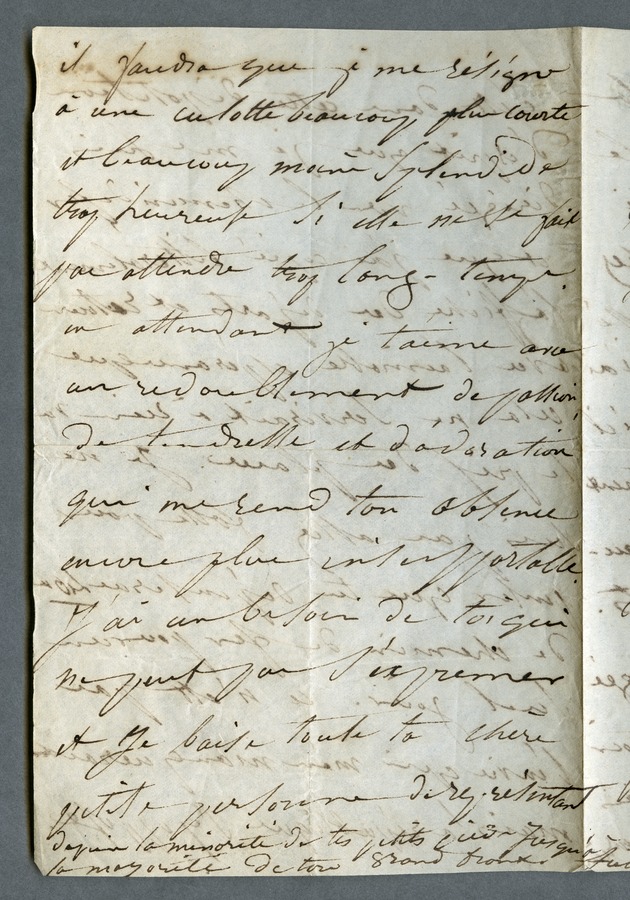 il faudra que je me résigne
à une culotte beaucoup plus courte
et beaucoup moins splendide
trop heureuse si elle ne se fait
pas attendre trop long-temps.
en attendant je t'aime avec
un redoublement de passion,
de tendresse et d'adoration
qui me rend ton absence
encore plus insupportable.
J'ai un besoin de toi qui
ne peut pas s'exprimer
et je baise toute ta chère
petite personne
depuis la minorité de tes petits pieds jusqu'à
la majorité de ton grand front.